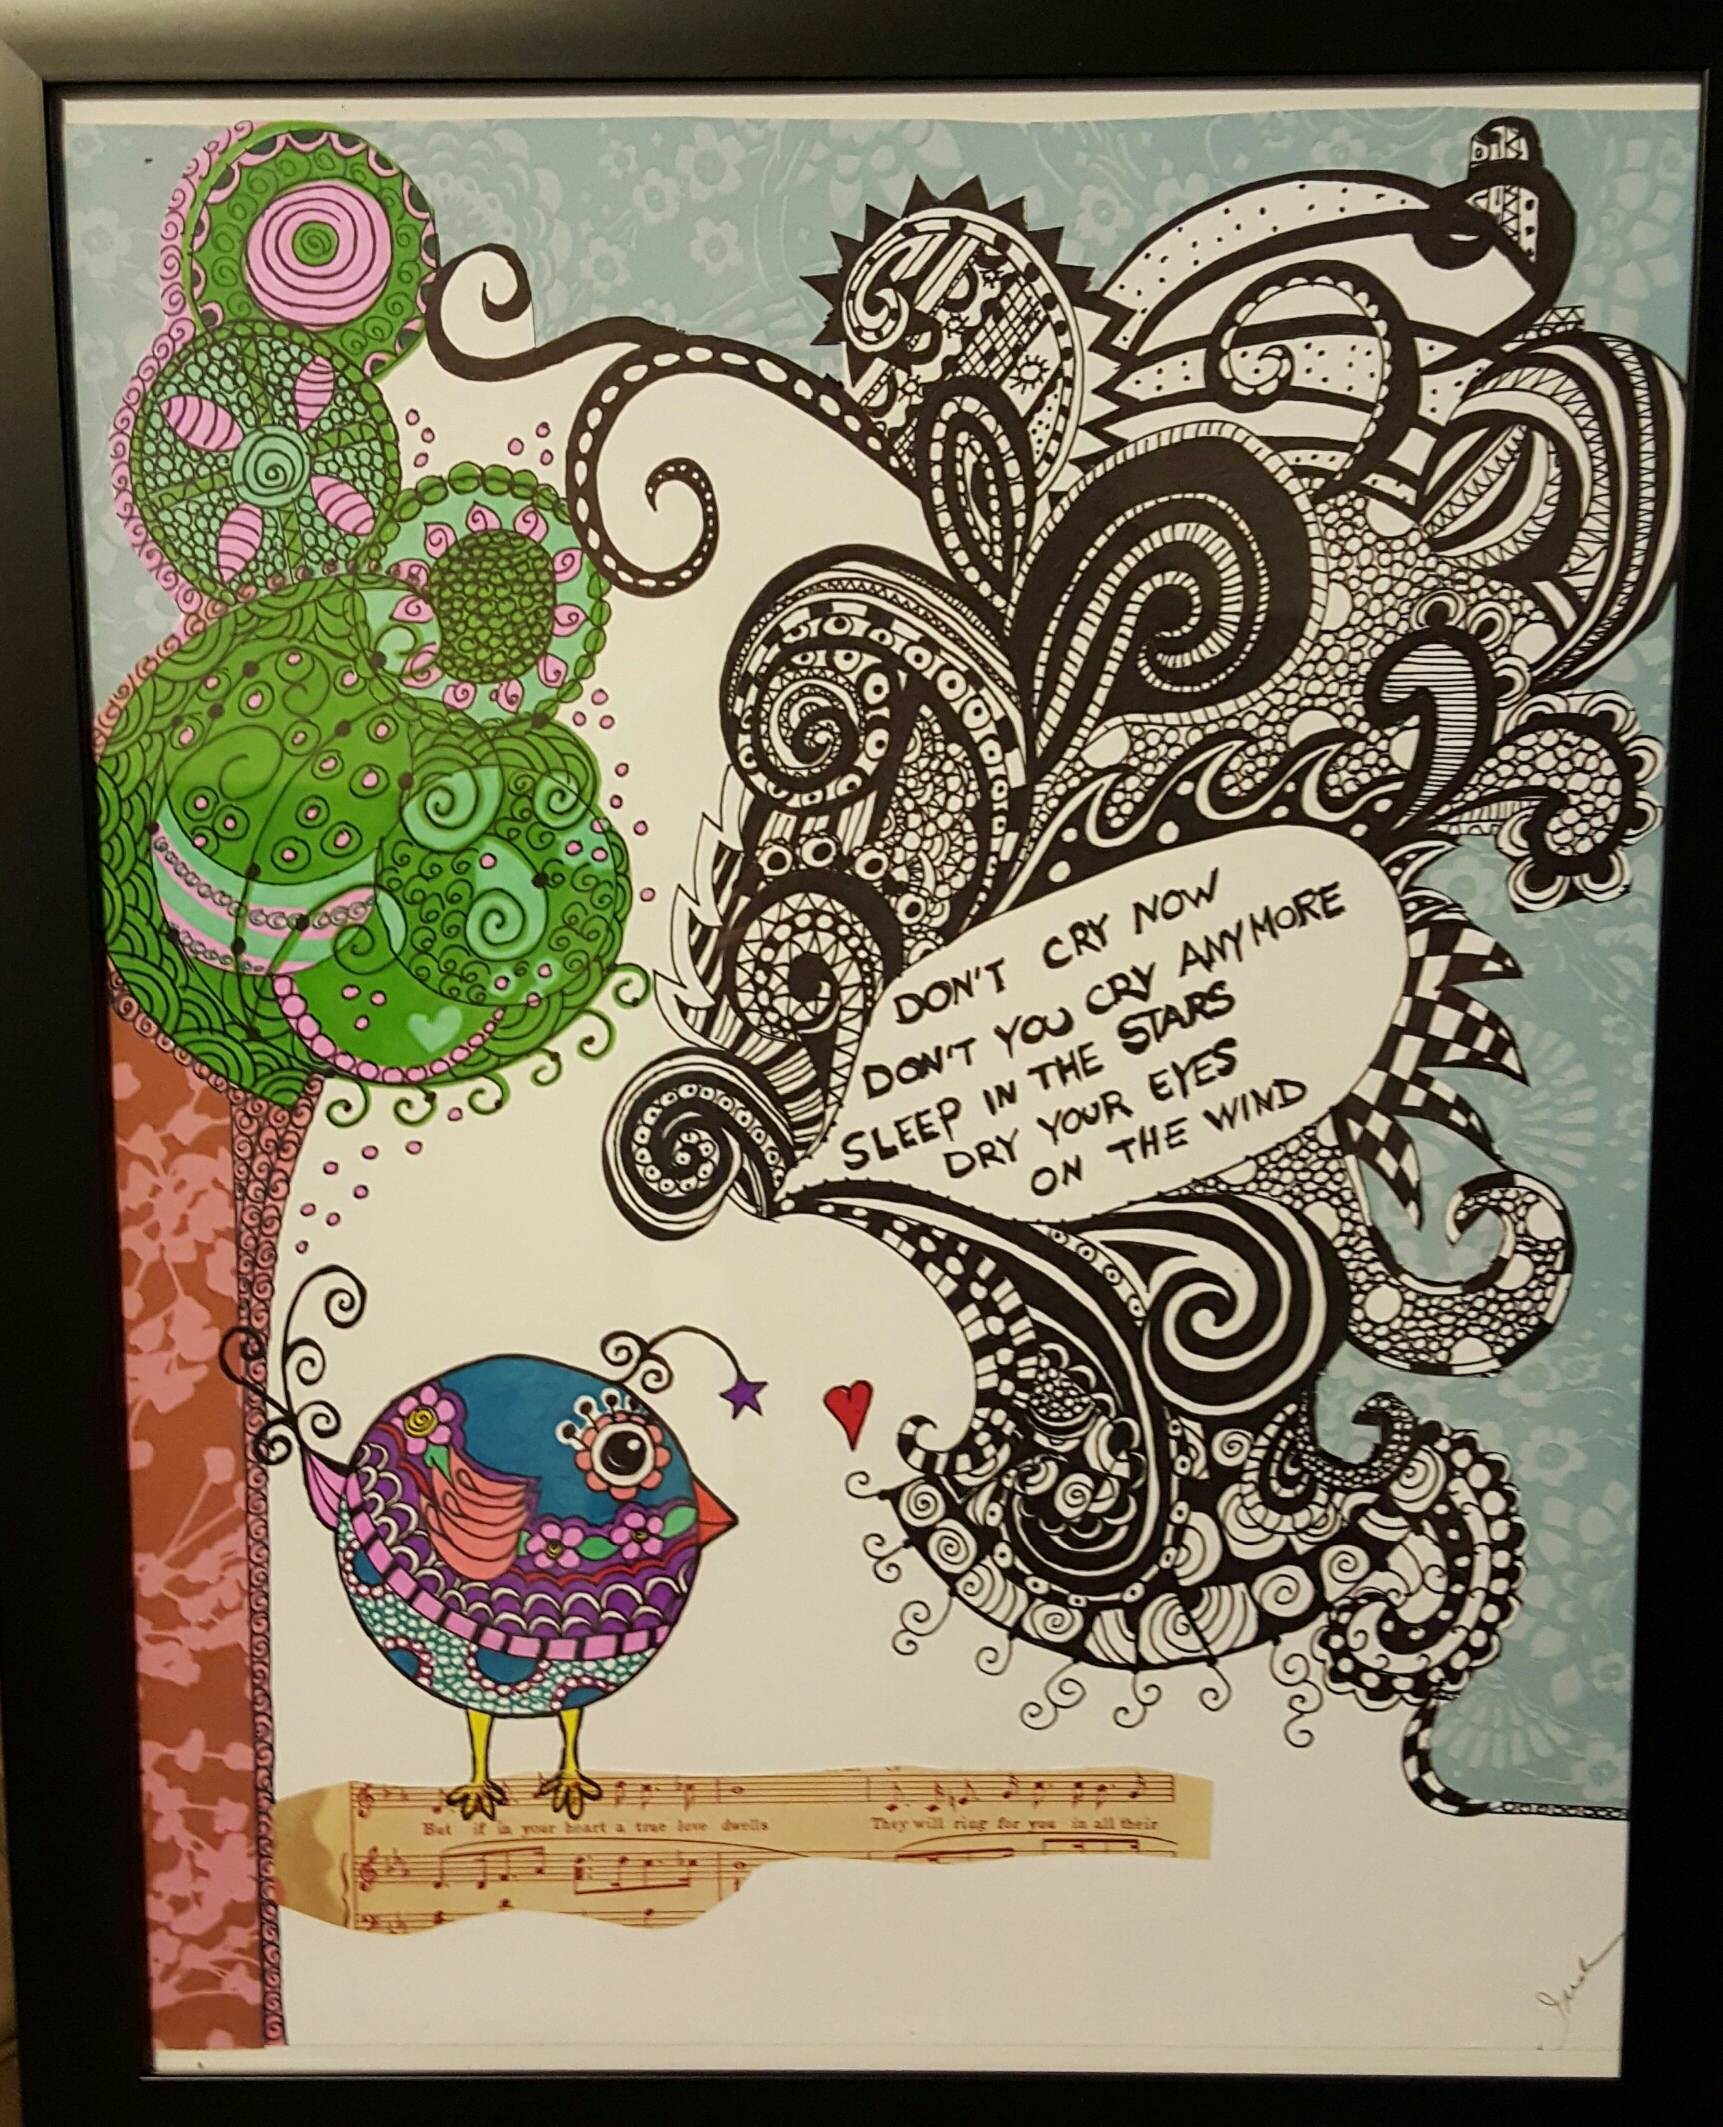 DON'T CRY NOW
DON'T YOU CRY ANYMORE
SLEEP IN THE STARS
DRY YOUR EYES
ON THE WIND
But if in your heart a true love dwells They will ring for you in all their